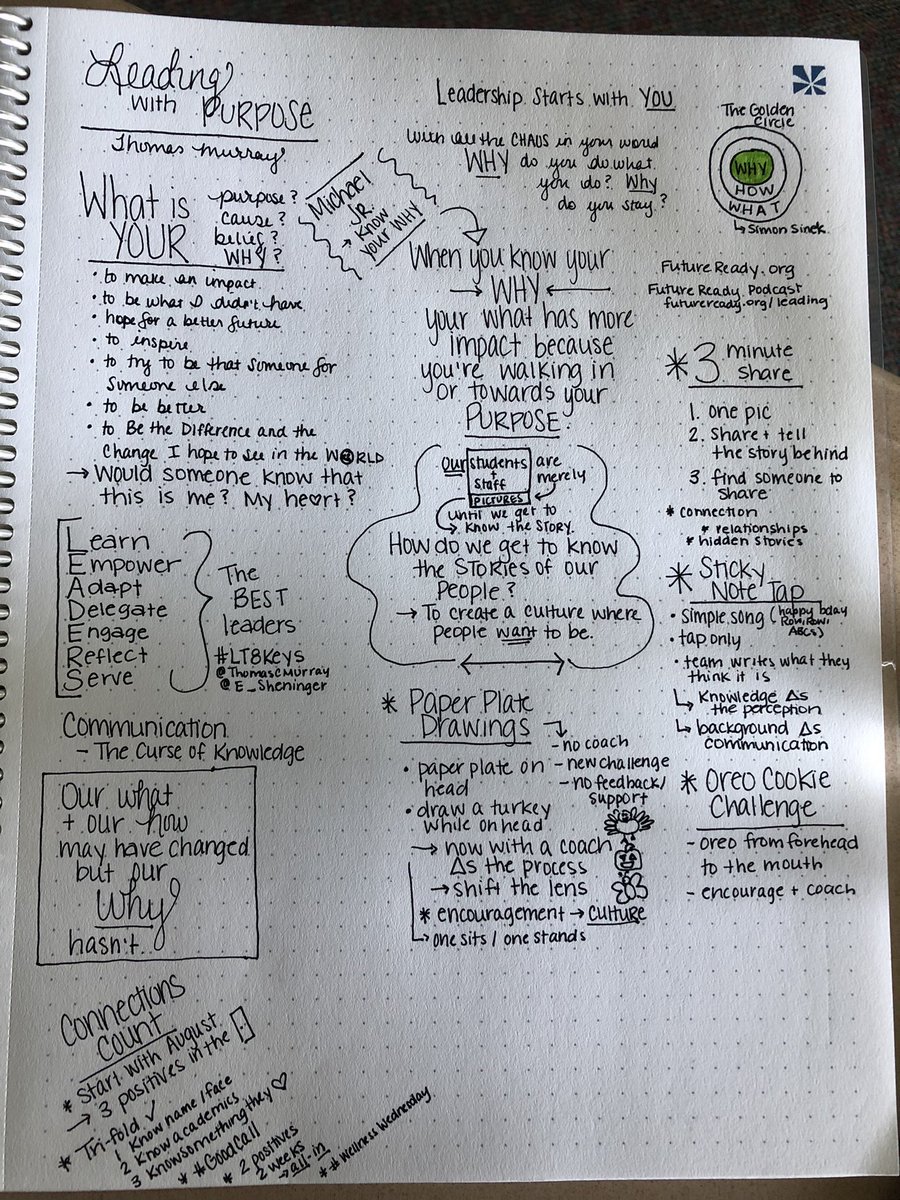 Leading
with PURPOSE
Thomas Murray
What is
YOUR
purpose?
cause?
belief?
WHY?
• to make an impact
• to be what I didn't have
• hope for a better future
• to inspire
• to try to be that someone for
someone else
• to be better
• to Be the Difference and the
Change I hope to see in the WORLD
→ Would someone know that
this is me? My he♡rt?
Learn
Empower
Adapt
Delegate
Engage
Reflect
Serve
The
BEST
leaders
#LT8Keys
@ThomasCMurray
@E_Sheninger
Communication
- The Curse of Knowledge
Our what
+ our how
may have changed
but our
Why
hasn't.
Connections
Count
* Start with August
→ 3 positives in the
* Tri-fold ✓
1 Know name/face
2 Know academics
3 Know something they ♡
* #GoodCall
* 2 positives
2 weeks
→ all-in
* #WellnessWednesday
Leadership Starts with YOU
With all the CHAOS in your world
WHY do you do what
you do? Why
do you stay?
Michael
JR.
→ Know
your WHY
When you know your
→ WHY ←
your what has more
impact because
you're walking in
or towards your
PURPOSE.
Our students
+
staff
are
merely
PICTURES
until we get to
→ know the STORY.
How do we get to know
the STORIES of our
People?
→ To create a culture where
people want to be.
* Paper Plate
Drawings
- no coach
- new challenge
- no feedback/
support
• paper plate on
head
• draw a turkey
while on head
→ now with a coach
Δs the process
→ shift the lens
* encouragement → CULTURE
↳ one sits / one stands
The Golden
Circle
WHY
HOW
WHAT
↳ Simon Sinek
Future Ready.org
Future Ready Podcast
futureready.org/leading
* 3 minute
share
1. one pic
2. Share + tell
the story behind
3. find someone to
share
* connection
* relationships
* hidden stories
* Sticky
Note Tap
• simple song (happy bday
Row, Row,
ABCs)
• tap only
• team writes what they
think it is
↳ Knowledge Δs
the perception
↳ background Δs
communication
* Oreo Cookie
Challenge
- oreo from forehead
to the mouth
- encourage + coach